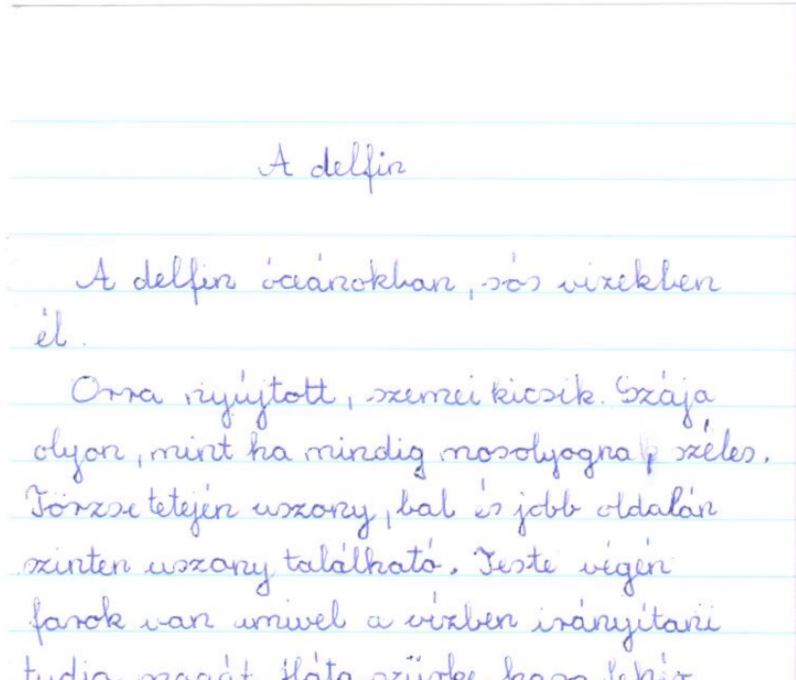 A delfin
A delfin óceánokban, sós vizekben
él.
Orra nyújtott, szemei kicsik. Szája
olyan, mint ha mindig mosolyogna, széles.
Törzse tetején uszony, bal és jobb oldalán
szinten uszony található. Teste végén
farok van amivel a vízben irányítani
tudja magát. Háta szürke, hasa fehér